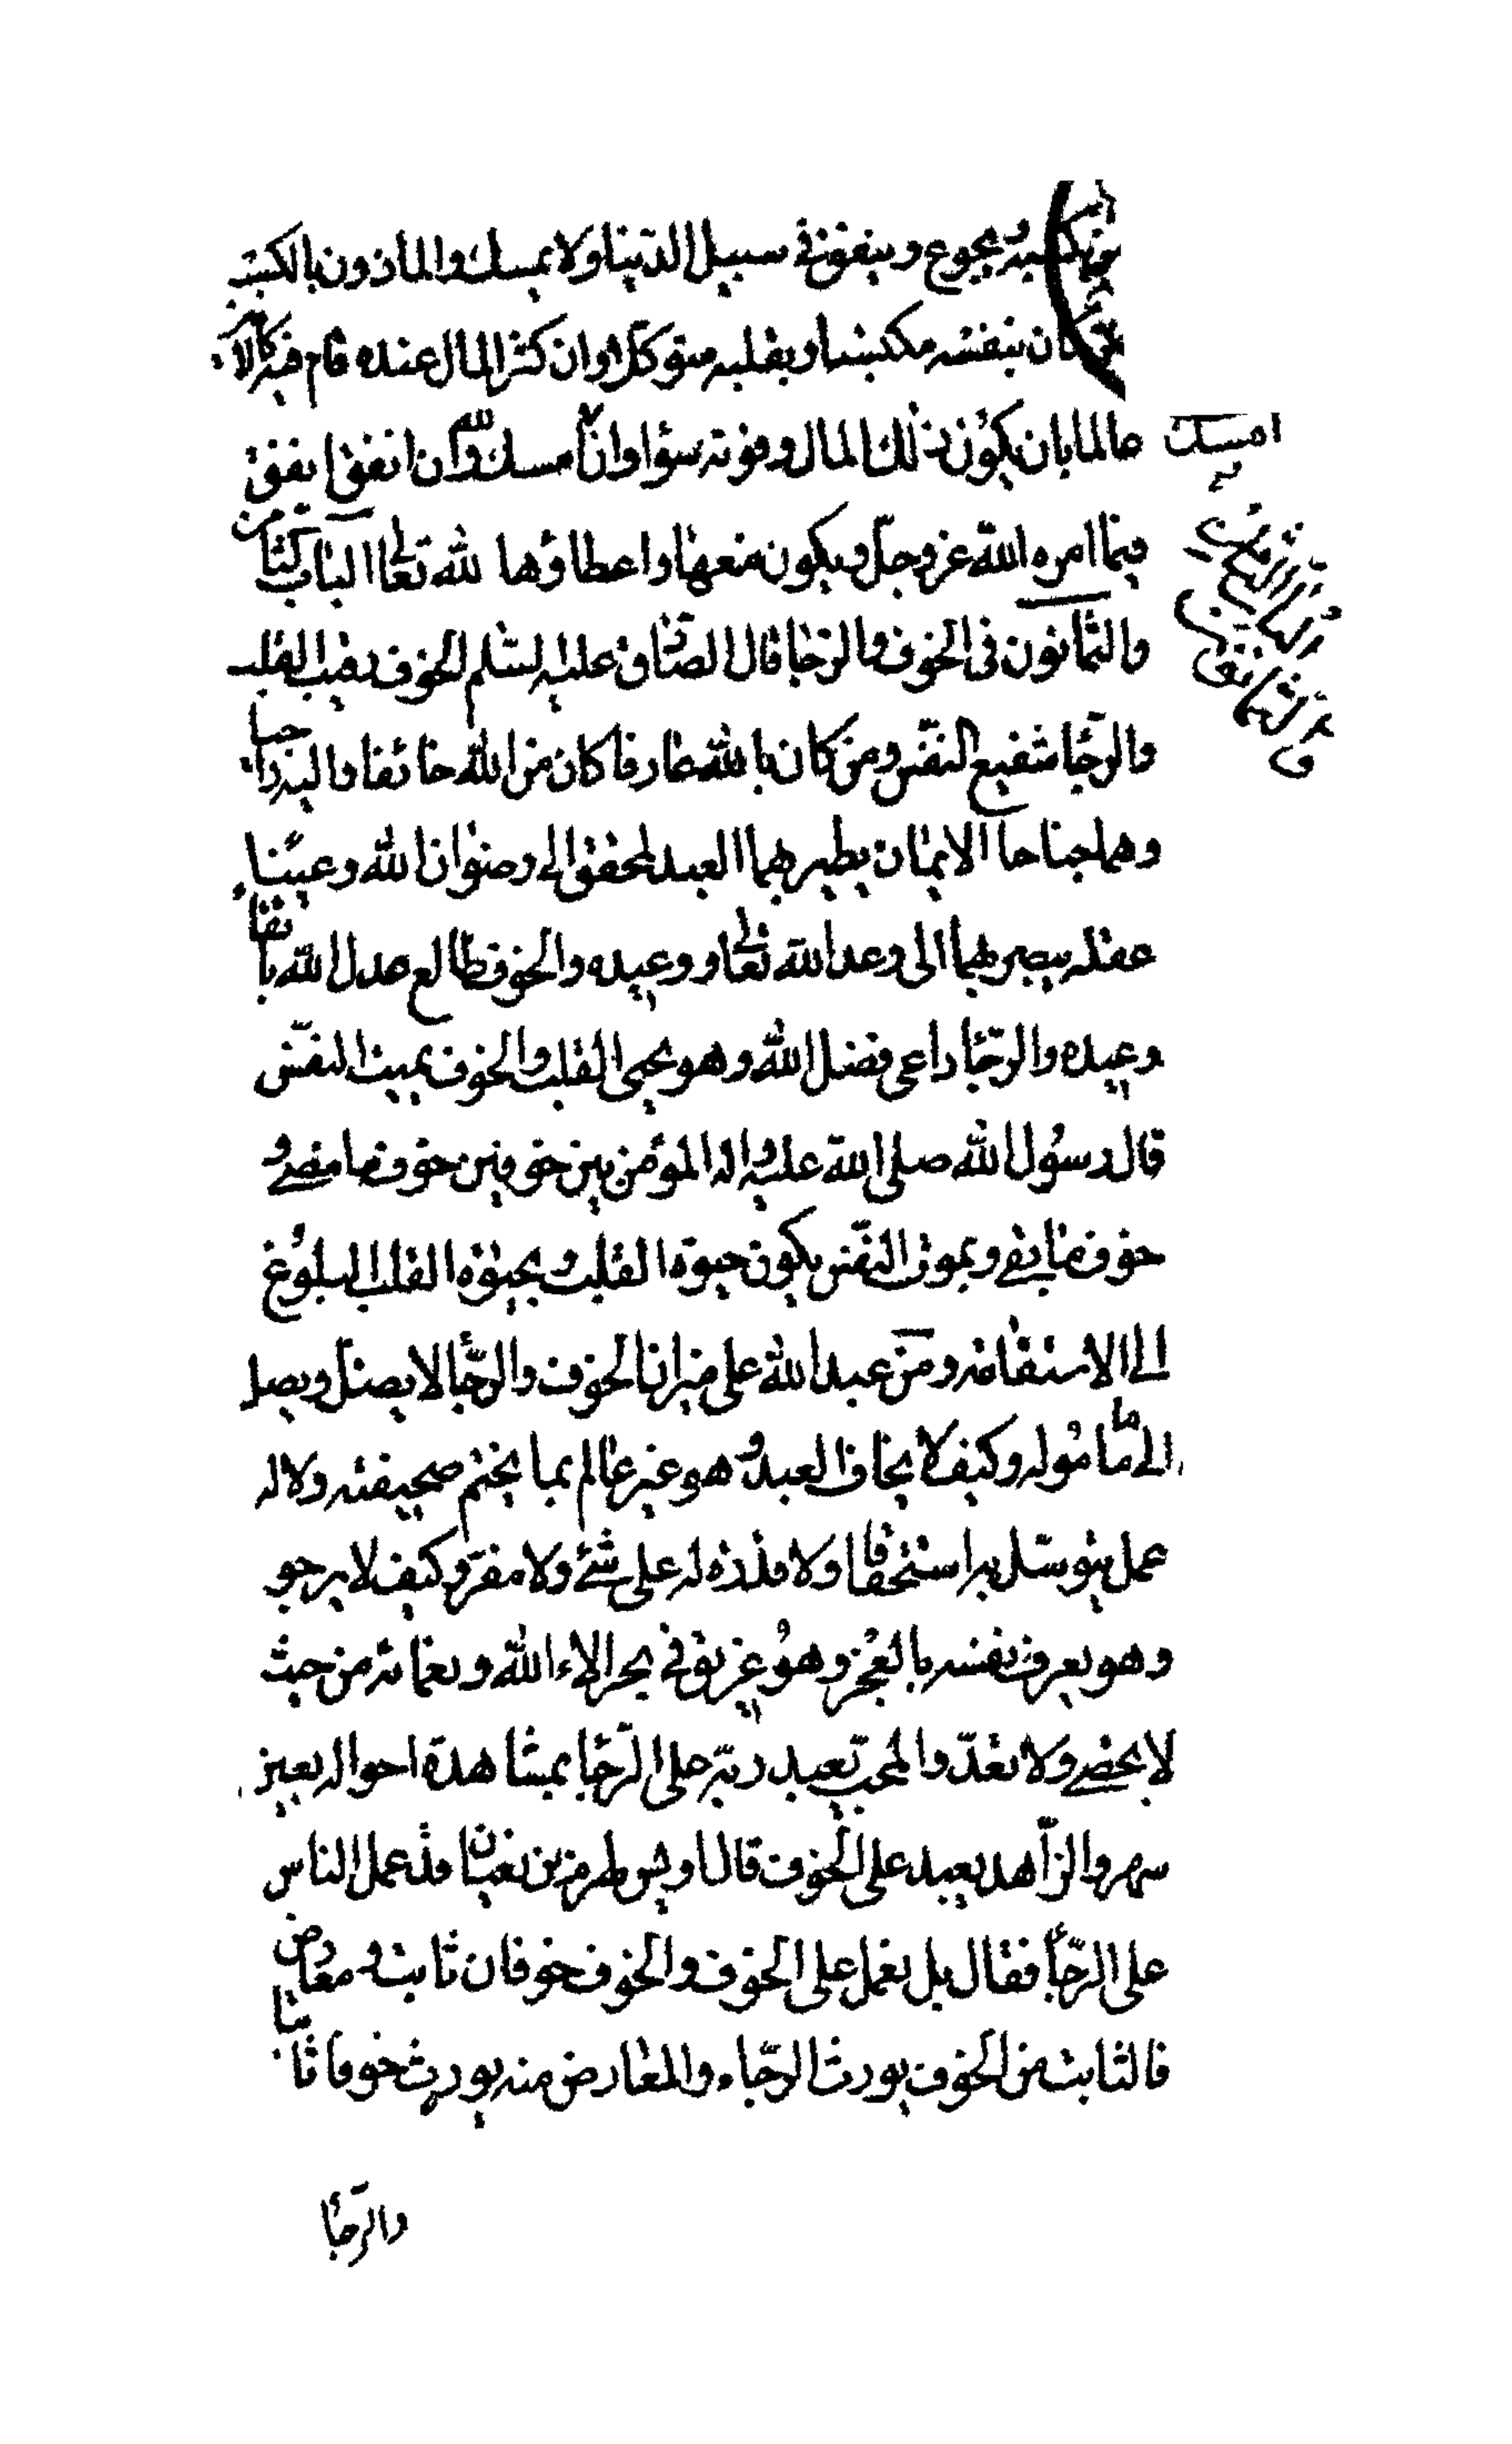 من كسبه ويجوع وينفق في سبيل الدنيا ولا يمسك والماذون بالكسب
من كان بنفسه مكتسبا وبقلبه متوكلا وان كثر المال عنده قام فيه كالامين
عالما بان يكون ذلك المال وفوته سواء وان امسك امسك لله وان انفق انفق
فيما امره الله عز وجل ويكون منعها واعطاؤها لله تعالى الباب الثامن
والثمانون فى الخوف والرجا قال الصادق عليه السلم الخوف رقيب القلب
والرجا شفيع النفس ومن كان بالله عارفا كان من الله خائفا واليه راجيا
وهما جناحا الايمان يطير بهما العبد المحقق الى رضوان الله وعينا
عقله يبصر بهما الى وعد الله تعالى ووعيده والخوف طالع عدل الله باتقاء
وعيده والرجا داعى فضل الله وهو يحيى القلب والخوف يميت النفس
قال رسول الله صلى الله عليه واله المؤمن بين خوفين خوف ما مضى و
خوف ما بقى وبموت النفس يكون حيوة القلب وبحيوة القلب البلوغ
الى الاستقامة ومن عبد الله على ميزان الخوف والرجا لا يضل ويصل
الى مأموله وكيف لا يخاف العبد وهو غير عالم بما يختم صحيفته ولا له
عمل يتوسل به استحقاقا ولا قدرة له على شئ ولا مفر وكيف لا يرجو
وهو يعرف نفسه بالعجز وهو غريق فى بحر الاء الله ونعمائه من حيث
لا يحصى ولا تعد والمحب يعبد ربه على الرجا بمشاهدة احواله بعين
سهر والزاهد يعبد على الخوف قال اويس لهرم بن حيان قد عمل الناس
على الرجا فقال بل نعمل على الخوف والخوف خوفان ثابت ومعارض
فالثابت من الخوف يورث الرجاء والمعارض منه يورث خوفا ثابتا
والرجا
امسك